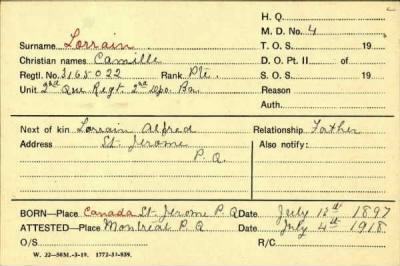 H. Q.
Surname Lorrain M. D. No. 4
Christian names Camille T. O. S. 19
Regtl. No. 3165022 Rank. Pte. D. O. Pt. II of
Unit 2nd Que Regt. 2nd Dpo. Bn. S. O. S. 19
Reason
Auth.
Next of kin Lorrain Alfred Relationship Father
Address St. Jerome Also notify:
P. Q.
BORN—Place Canada St. Jerome P. Q Date July 12th 1897
ATTESTED—Place Montreal P. Q Date July 4th 1918
O/S R/C
W. 22—50M.-3-19. 1772-39-839.